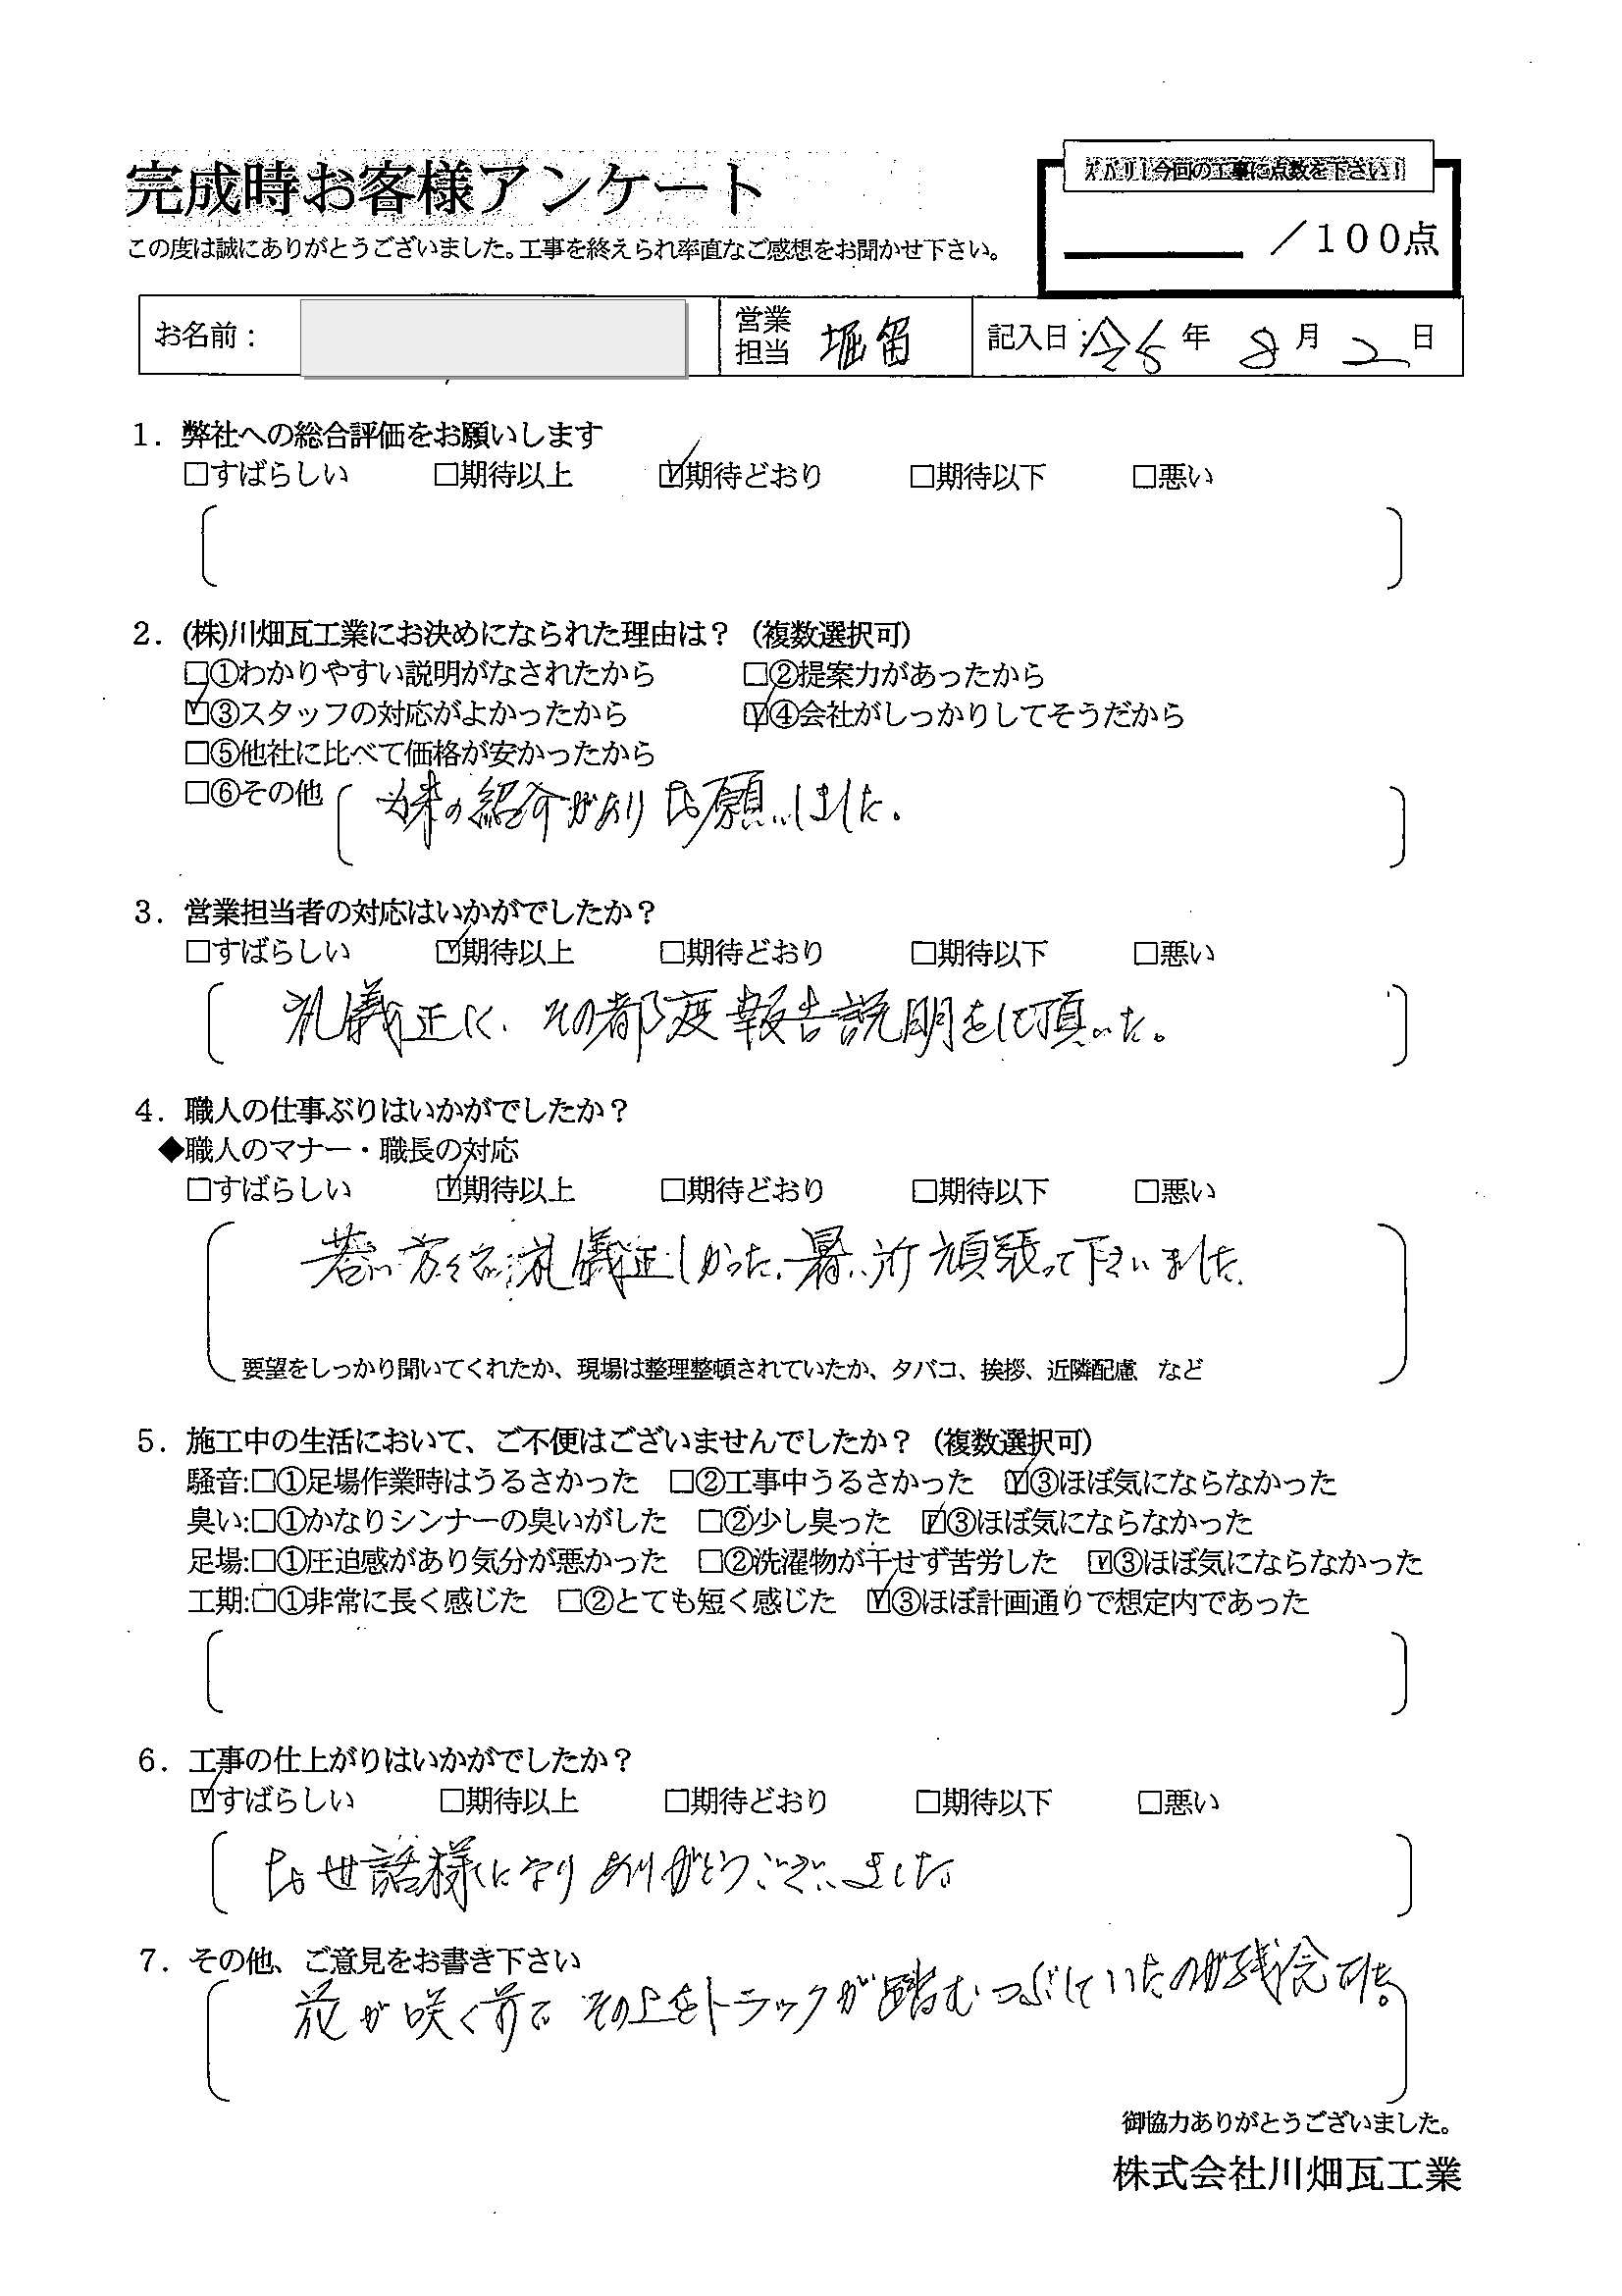 完成時お客様アンケート
ズバリ！今回の工事に点数を下さい！
／100点
この度は誠にありがとうございました。工事を終えられ率直なご感想をお聞かせ下さい。
お名前： 営業担当 堀留 記入日：令和6年 8月 2日
1．弊社への総合評価をお願いします
□すばらしい □期待以上 ☑期待どおり □期待以下 □悪い
2．(株)川畑瓦工業にお決めになられた理由は？（複数選択可）
□①わかりやすい説明がなされたから □②提案力があったから
☑③スタッフの対応がよかったから ☑④会社がしっかりしてそうだから
□⑤他社に比べて価格が安かったから
□⑥その他 の紹介がありお願いしました。
3．営業担当者の対応はいかがでしたか？
□すばらしい ☑期待以上 □期待どおり □期待以下 □悪い
礼儀正しく、その都度報告説明をして頂いた。
4．職人の仕事ぶりはいかがでしたか？
◆職人のマナー・職長の対応
□すばらしい ☑期待以上 □期待どおり □期待以下 □悪い
若い方々で礼儀正しかった、暑い所頑張って下さいました。
要望をしっかり聞いてくれたか、現場は整理整頓されていたか、タバコ、挨拶、近隣配慮 など
5．施工中の生活において、ご不便はございませんでしたか？（複数選択可）
騒音:□①足場作業時はうるさかった □②工事中うるさかった ☑③ほぼ気にならなかった
臭い:□①かなりシンナーの臭いがした □②少し臭った ☑③ほぼ気にならなかった
足場:□①圧迫感があり気分が悪かった □②洗濯物が干せず苦労した ☑③ほぼ気にならなかった
工期:□①非常に長く感じた □②とても短く感じた ☑③ほぼ計画通りで想定内であった
6．工事の仕上がりはいかがでしたか？
☑すばらしい □期待以上 □期待どおり □期待以下 □悪い
お世話様になりありがとうございました。
7．その他、ご意見をお書き下さい
花が咲く前でその上をトラックが踏むつぶしていたのが残念でした。
御協力ありがとうございました。
株式会社川畑瓦工業